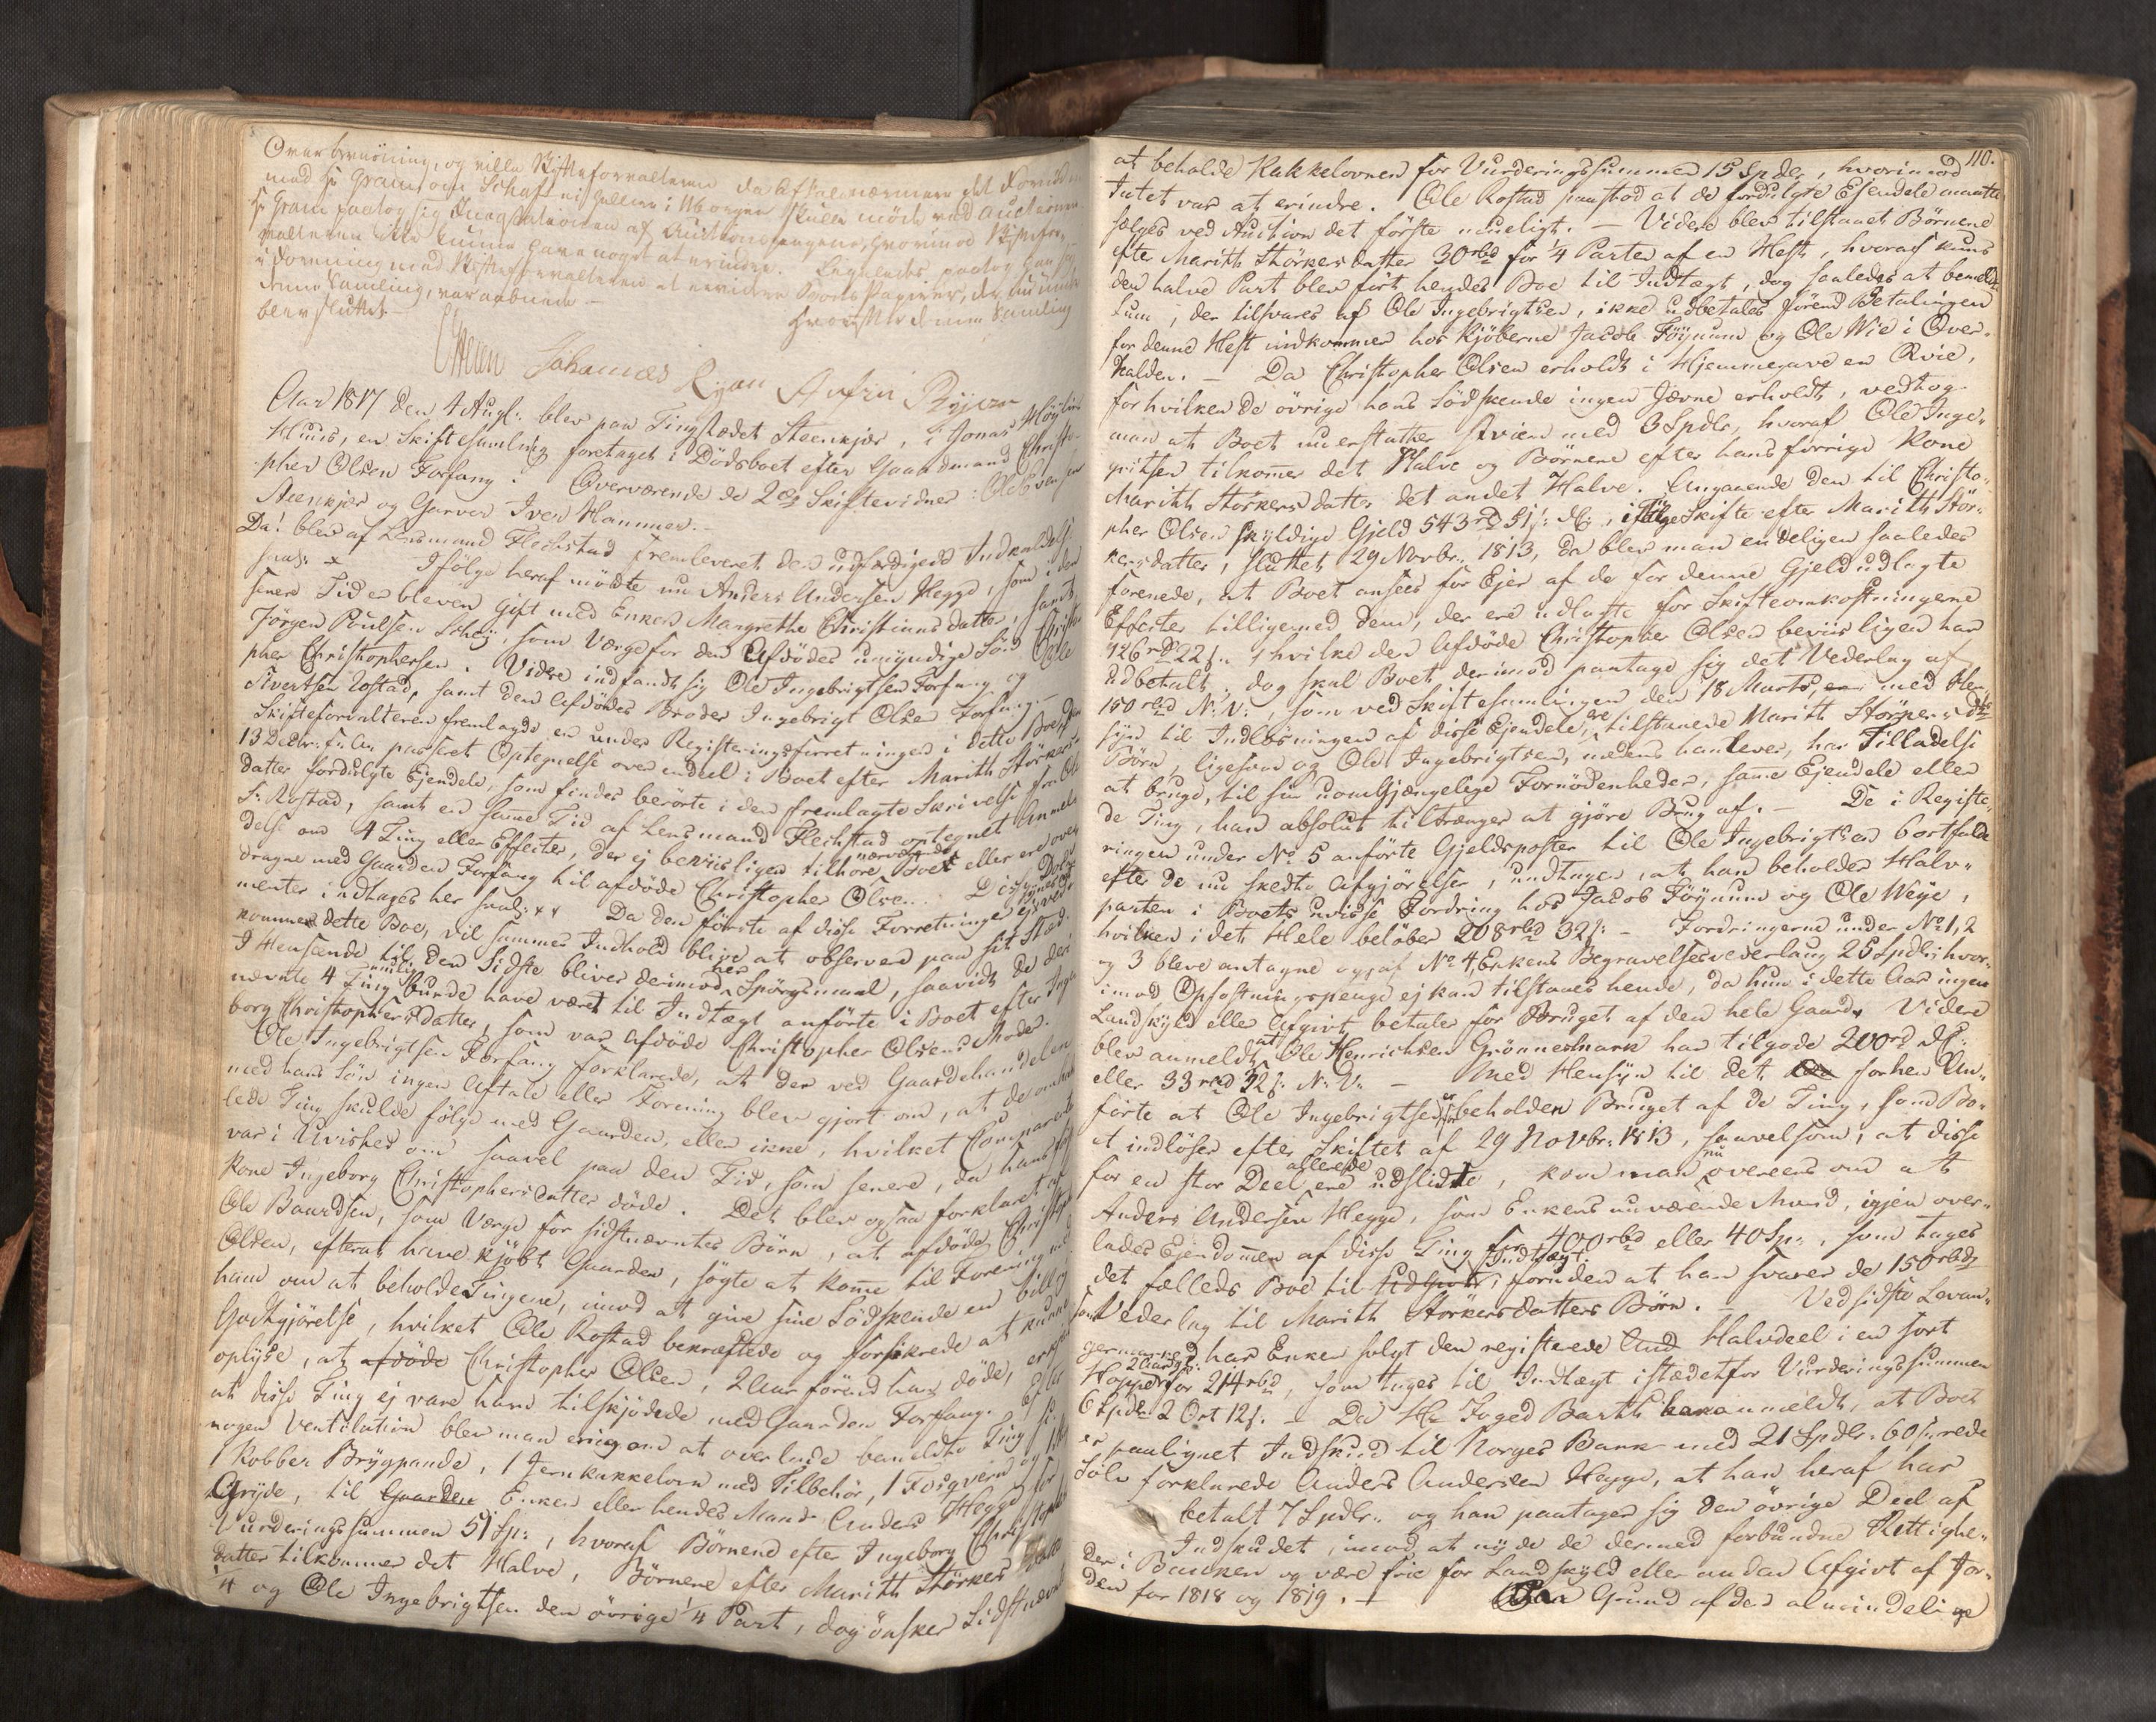 Overbeviisning, og vilde Skifteforvalteren da Aftale nærmere det
med Hr Gram om
Hr Gram paatog sig af Auctionspengene, hvorimod Skiftefor-
valteren ikke kunne have noget at erindre. Ligeledes paatog han sig
i Forening med Skifteforvalteren at Boets Papirer, der nu under
denne Samling, var aabnede –
Hvormed denne Samling
blev sluttet. –
Johannes Ryan
Aar 1817 den 4 Augl: blev paa Tingstædet Steenkjær, i Jonas Høylies
Huus, en Skiftesamling foretaget i Dödsboet efter Gaardmand Christo-
pher Olsen Forfang. Overværende de 2de Skiftevidner: Ole
Steenkjær og Garver Iver Hammer. –
Da! blev af Lensmand Flechstad fremleveret den udfærdigede Indkaldelse
saal: x Ifölge heraf mödte nu Anders Andersen Hegge, som i den
senere Tid er bleven gift med Enken Margrethe Christinnsdatter, samt
Jörgen Poulsen Schey, som Værge for den Afdödes umyndige Sön Christo
pher Christophersen. Videre indfandt sig Ole Ingebrigtsen Forfang og Ole
Sivertsen Rostad, samt den Afdödes Broder Ingebrigt Olsen Forfang. –
Skifteforvalteren fremlagde en under Registeringsforretningen i dette Boe den
13 Decbr: f: A: passeret Optegnelse over endeel i Boet efter Marith Störkers-
datter fordulgte Ejendele, som findes berörte i den fremlagte Skrivelse fra Ole
S: Rostad, samt en samme Tid af Lensmand Flechstad optegnet Anmel-
delse om 4 Ting eller Effecter, der ej beviisligen tilhöre nærværende Boet eller ere over
dragne med Gaarden Forfang til afdöde Christopher Olsen. Disse Docu
menter indtages her saal: xx Da den förste af disse Forretninger egentl: ved
kommer dette Boe, vil sammes Indhold blive at observere paa sit Sted.
I Henseende til den Sidste bliver derimod her Spörgsmaal, saavidt de deri
nævnte 4 Ting nemlig burde have været til Indtægt anförte i Boet efter Inge
borg Christophersdatter, som var afdöde Christopher Olsens Moder.
Ole Ingebrigtsen Forfang forklarede, at der ved Gaardehandelen
med hans Sön ingen Aftale eller Forening blev gjort om, at de omhand
lede Ting skulde fölge med Gaarden, eller ikke, hvilket Comparenten
var i Uvished om saavel paa den Tid, som senere, da hans
Kone Ingeborg Christophersdatter döde. Det blev ogsaa forklaret af
Ole Baardsen, som Værge for sidstnævntes Börn, at afdöde Christopher
Olsen, efterat have kjöbt Gaarden, sögte at komme til Forening med
ham om at beholde Tingene, imod at give sine Södskende en billig
Godtgjörelse, hvilket Ole Rostad bekræftede og forsikrede at kunne
oplyse, at afdöde Christopher Olsen, 2 Aar förend han döde,
at disse Ting ej vare ham tilskjödede med Gaarden Forfang. Efter
nogen Ventilation blev man enig om at overlade bemeldte Ting
1 Kobber Brygpande, 1 Jernkakkelovn med Tilbehör, 1 og 1
Gryde, til Gaarden Enken eller hendes Mand Anders Hegge for
Vurderingssummen 51 Sp:, hvoraf Börnene efter Ingeborg Christophers
datter tilkommer det Halve, Börnene efter Marith Störkers
1/4 og Ole Ingebrigtsen den övrige 1/4 Part, dog önsker Sidstnævnte
110.
at beholde Kakkelovnen for Vurderingssummen 15 Spdlr, hvorimod
Intet var at erindre. Ole Rostad paastod at de fordulgte Ejendele maatte
sælges ved Auction det förste mueligt. – Videre blev tilstaaet Börnene
efter Marith Störkersdatter 30 rbd for 1/4 Parten af en Hest, hvoraf kuns
den halve Part blev fört hendes Boe til Indtægt, dog saaledes at bemeldte
Sum, der tilsvares af Ole Ingebrigtsen, ikke udbetales förend Betalingen
for denne Hest indkommer hos Kjöberne Jacob Föynum og Ole Wie i Over-
halden. – Da Christopher Olsen erholdt i Hjemmegave en Qvie,
for hvilken de övrige hans Södskende ingen Jævne erholdt, vedtog
man at Boet nu erstatter Qvien med 3 Spdlr, hvoraf Ole Inge-
britsen tilkommer det Halve og Börnene efter hans forrige Kone
Marith Störkersdatter det andet Halve. Angaaende den til Christo-
pher Olsen skyldige Gjeld 543 rd 51 s: DC:, ifölge Skifte efter Marith Stör-
kersdatter, sluttet 29 Novbr: 1813, da blev man endeligen saaledes
forenede, at Boet ansees for Ejer af de for denne Gjeld udlagte
Effecter tilligemed dem, der ere udlagte for Skifteomkostningerne
126 rd 22 s:, hvilke den Afdöde Christopher Olsen beviisligen har
udbetalt, dog skal Boet derimod paatage sig det Vederlag af
150 rbd N: V:, som ved Skiftesamlingen den 18 Marts, med Hen-
syn til Indlösningen af disse Ejendele, ere tilstanede Marith Störkersdtrs
Börn, ligesom og Ole Ingebrigtsen, medens han lever, har Tilladelse
at bruge, til sin uomgjængelige Fornödenheder, samme Ejendele eller
de Ting, han absolut tiltrænger at gjöre Brug af. – De i Registe-
ringen under No 5 anförte Gjeldsposter til Ole Ingebrigtsen bortfalde
efter de nu skedte Afgjörelser, undtagen, at han beholder Halv-
parten i Boets uvisse Fordring hos Jacob Föynum og Ole Weye,
hvilken i det Hele belöber 208 rbd 32 s: – Fordringerne under No 1, 2
og 3 bleve antagne og af No 4, Enkens Begravelsesvederlaug 25 Spdlr: hvor-
imod Opfostringspenge ej kan tilstaaes hende, da hun i dette Aar ingen
Landskyld eller Afgivt betaler for Bruget af den hele Gaard. Videre
blev anmeldt at Ole Henrichsen Grönnesmark har tilgode 200 rd DC:
eller 33 rbd 32 s: N: V: – Med Hensyn til det forhen An-
förte at Ole Ingebrigtsen beholder Bruget af de Ting, som Bo-
et indlöser efter Skiftet af 29 Novbr: 1813, saavelsom, at disse
for en stor Deel allerede ere udslidte, kom man nu overeens om at
Anders Andersen Hegge, som Enkens nuværende Mand, igjen over-
lades Ejendommen af disse Ting for 400 rbd eller 40 Sp:, som tages
det fælleds Boe til Indtægt, foruden at han svarer de 150 rbdr
som Vederlag til Marith Störkersdatters Börn. – Ved sidste Levan-
germarked har Enken solgt den registerede Halvdeel i en sort
2 Aars gl: Hoppe for 214 rbd, som tages til Indtægt istædetfor Vurderingssummen
6 Spdlr 2 Ort 12 s: – Da Hr Foged Barth har anmeldt, at Boet
er paalignet Indskud til Norges Bank med 21 Spdlr: 60 s: rede
Sölv forklarede Anders Andersen Hegge, at han heraf har
betalt 7 Spdlr: og han paatager sig den övrige Deel af
Indskudet, imod at nyde de dermed forbundne Rettighe-
der i Banken og være frie for Landskyld eller anden Afgivt af Jor-
den for 1818 og 1819. – Paa Grund af den almindelige